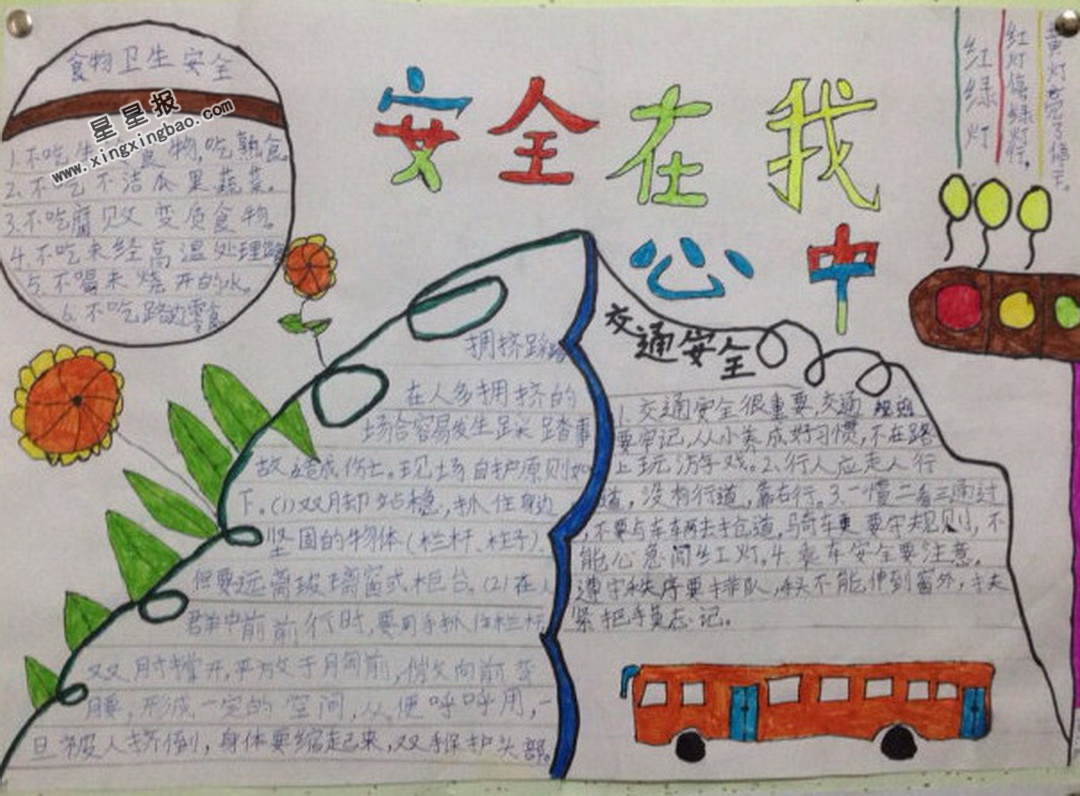 安全在我
心中
食物卫生安全
星星报
www.xingxingbao.com
1.不吃生食物,吃熟食
2.不吃不洁瓜果蔬菜。
3.不吃腐败变质食物。
4.不吃未经高温处理
5.不喝未烧开的水。
6.不吃路边零食
拥挤踩踏
在人多拥挤的
场合容易发生踩踏事
故造成伤亡。现场自护原则如
下。(1)双脚站稳,抓住身边
坚固的物体(栏杆、柱子),
但要远离玻璃窗或柜台。(2)在人
群中前前行时,要用手抓住栏杆
双肘撑开,平放于胸前,微向前弯
腰,形成一定的空间,以便呼呼用,一
旦被人挤倒,身体要缩起来,双手保护头部。
交通安全
1.交通安全很重要,交通规则
要牢记,从小养成好习惯,不在路
上玩游戏。2.行人应走人行
道,没有行道,靠右行。3.一慢二看三通过
,不要与车车两去抢道,骑车更要守规则,不
能心急闯红灯。4.乘车安全要注意,
遵守秩序要排队,头不能伸到窗外,扶
紧把手莫忘记。
红绿灯
红灯停绿灯行,
黄灯亮了停下。